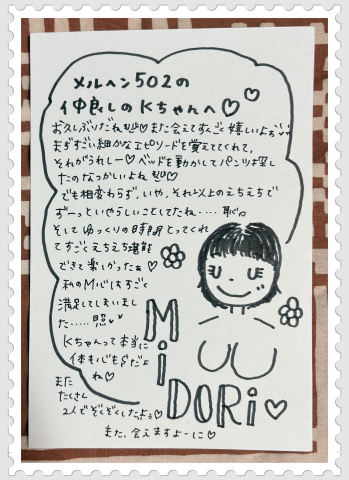 メルヘン502の
仲良しのKちゃんへ♡♡
お久しぶりだね♡また会えてすんごく嬉しいよぉ
まぢすごい細かなエピソードを覚えててくれて、
それがうれしー♡ベッドを動かしてパンツ探し
たのなつかしいよね♡
でも相変わらず、いや、それ以上のえちえちで
ずーっといやらしいことしてたね....恥
そしてゆっくりの時間とってくれ
てすごくえちえち堪能
できて楽しかったぁ♡
私のM心はすごく
満足してしまいまし
た.....照
Kちゃんって本当に
体も心もSだよ
ね♡
また
たくさん
2人でぞくぞくしたよぅ♡
また、会えますよーに♡
MiDORi♡